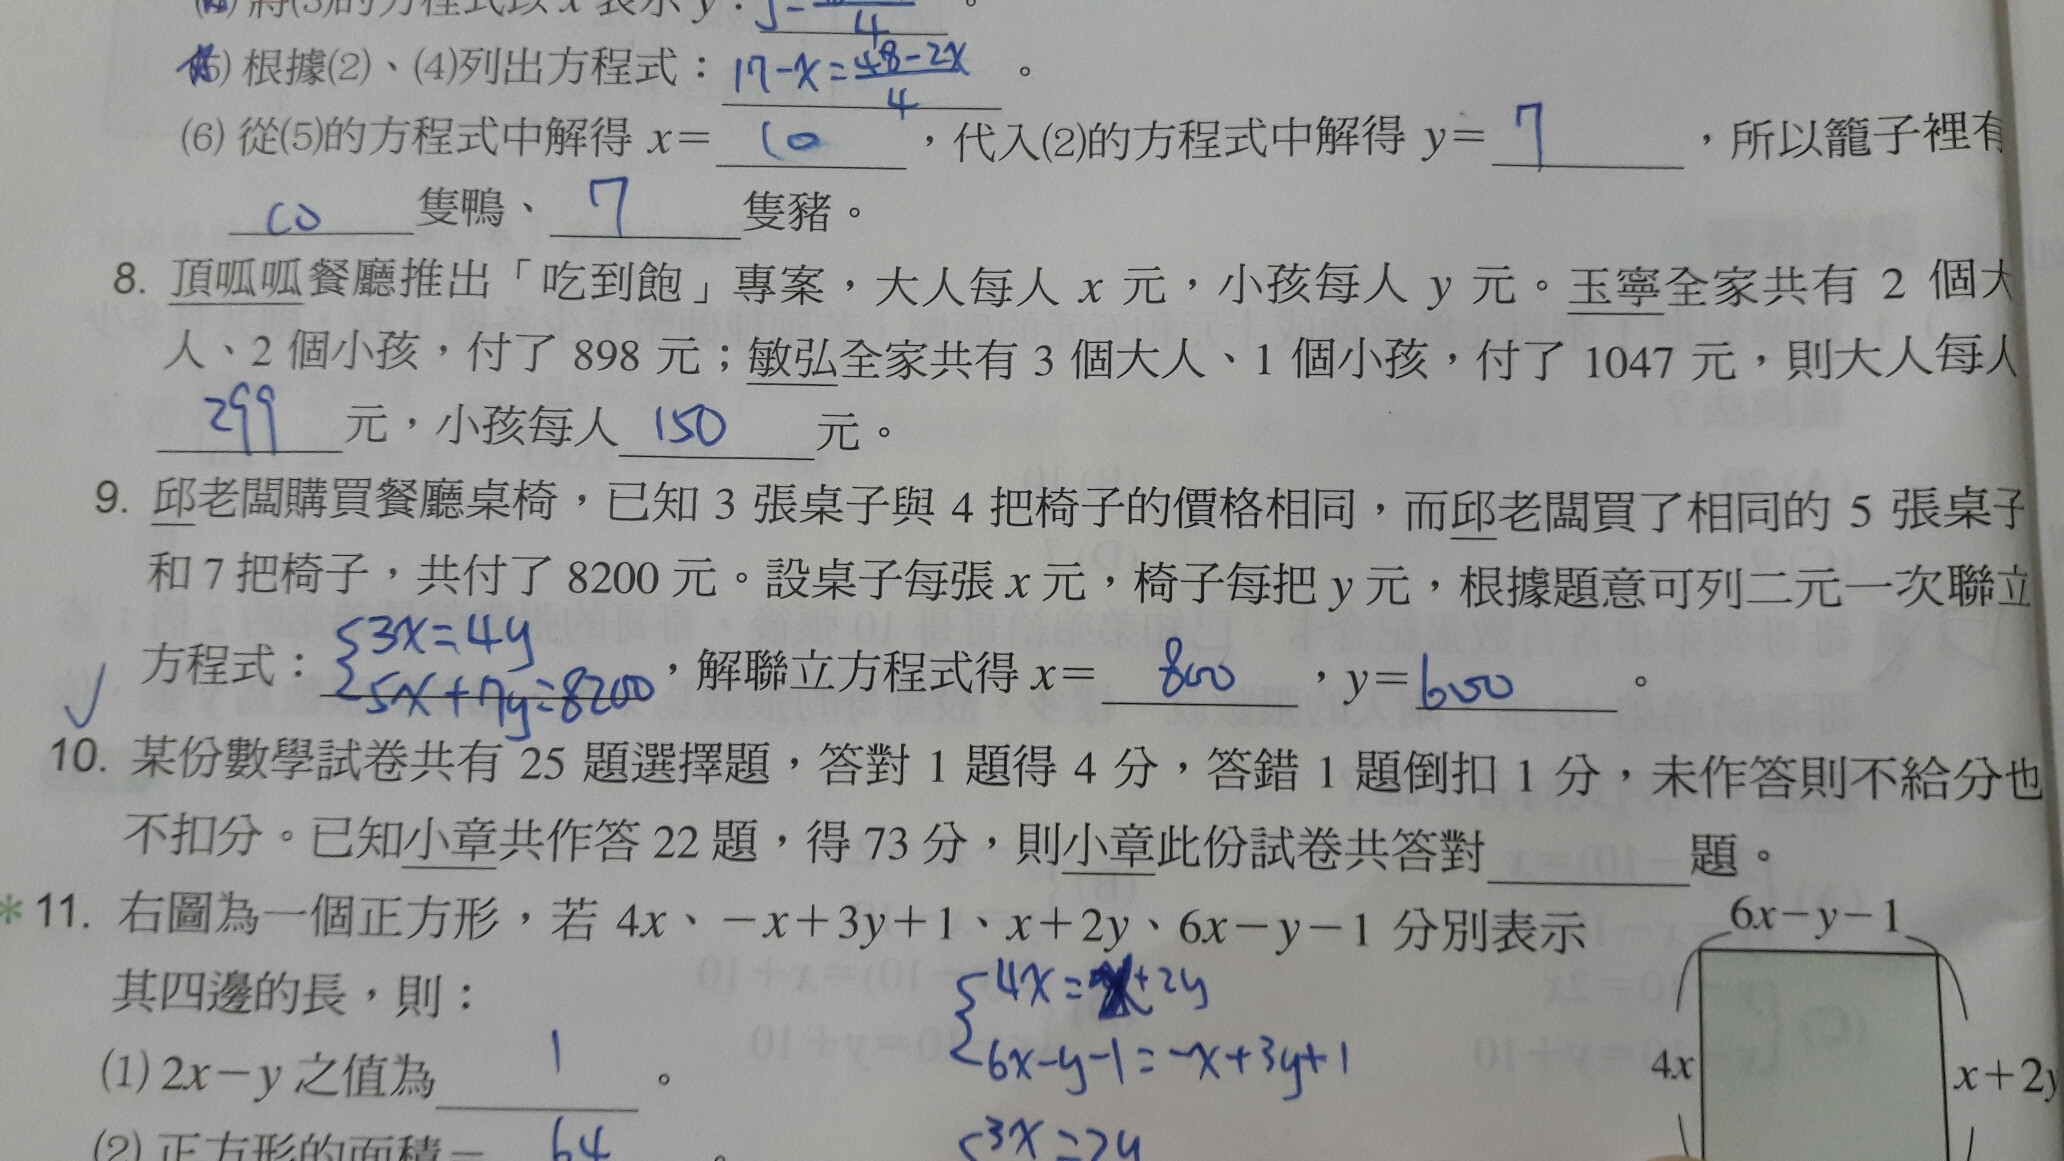 將(3)的方程式以 x 表示 y：
4
(5) 根據(2)、(4)列出方程式：17-x=48-2x/4。
(6) 從(5)的方程式中解得 x=10，代入(2)的方程式中解得 y=7，所以籠子裡有
10隻鴨、7隻豬。
8. 頂呱呱餐廳推出「吃到飽」專案，大人每人 x 元，小孩每人 y 元。玉寧全家共有 2 個大
人、2 個小孩，付了 898 元；敏弘全家共有 3 個大人、1 個小孩，付了 1047 元，則大人每人
299元，小孩每人150元。
9. 邱老闆購買餐廳桌椅，已知 3 張桌子與 4 把椅子的價格相同，而邱老闆買了相同的 5 張桌子
和 7 把椅子，共付了 8200 元。設桌子每張 x 元，椅子每把 y 元，根據題意可列二元一次聯立
方程式：{3x=4y
5x+7y=8200，解聯立方程式得 x=800，y=600。
10. 某份數學試卷共有 25 題選擇題，答對 1 題得 4 分，答錯 1 題倒扣 1 分，未作答則不給分也
不扣分。已知小章共作答 22 題，得 73 分，則小章此份試卷共答對題。
*11. 右圖為一個正方形，若 4x、-x+3y+1、x+2y、6x-y-1 分別表示
其四邊的長，則：
6x-y-1
4x
x+2y
{4x=x+2y
6x-y-1=-x+3y+1
(1) 2x-y 之值為1。
(2) 正方形的面積=64。
{3x=2y